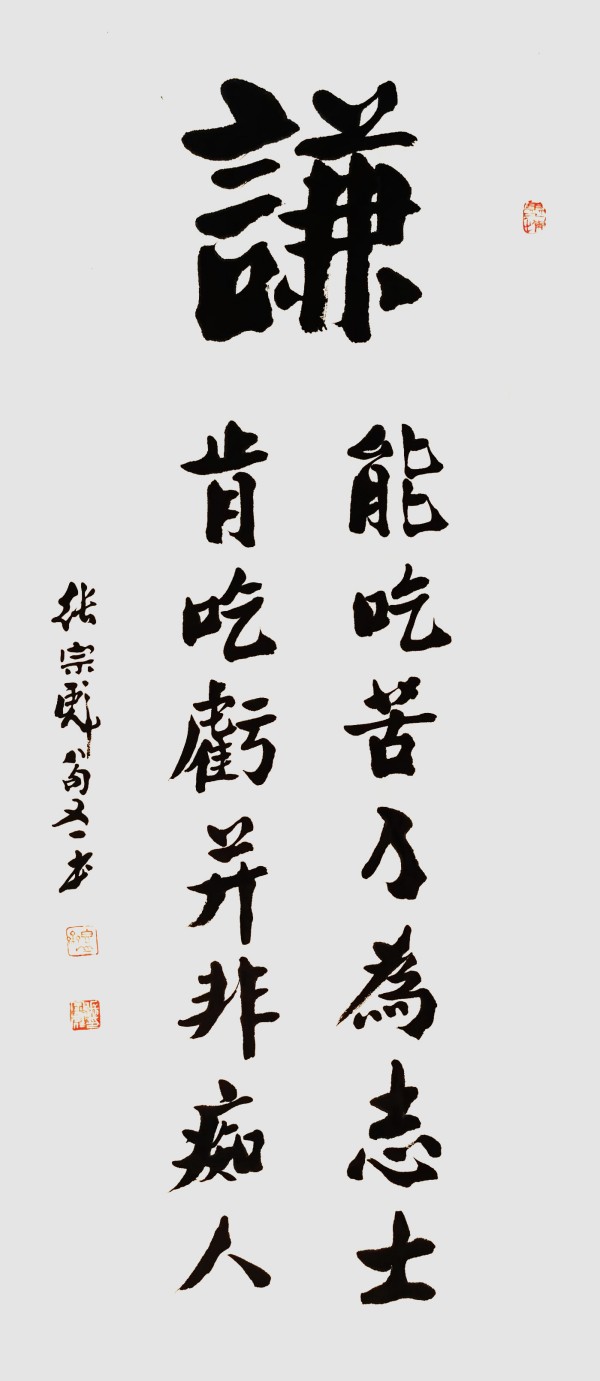 謙
能吃苦乃為志士
肯吃虧并非痴人
張宗彪八旬又一書